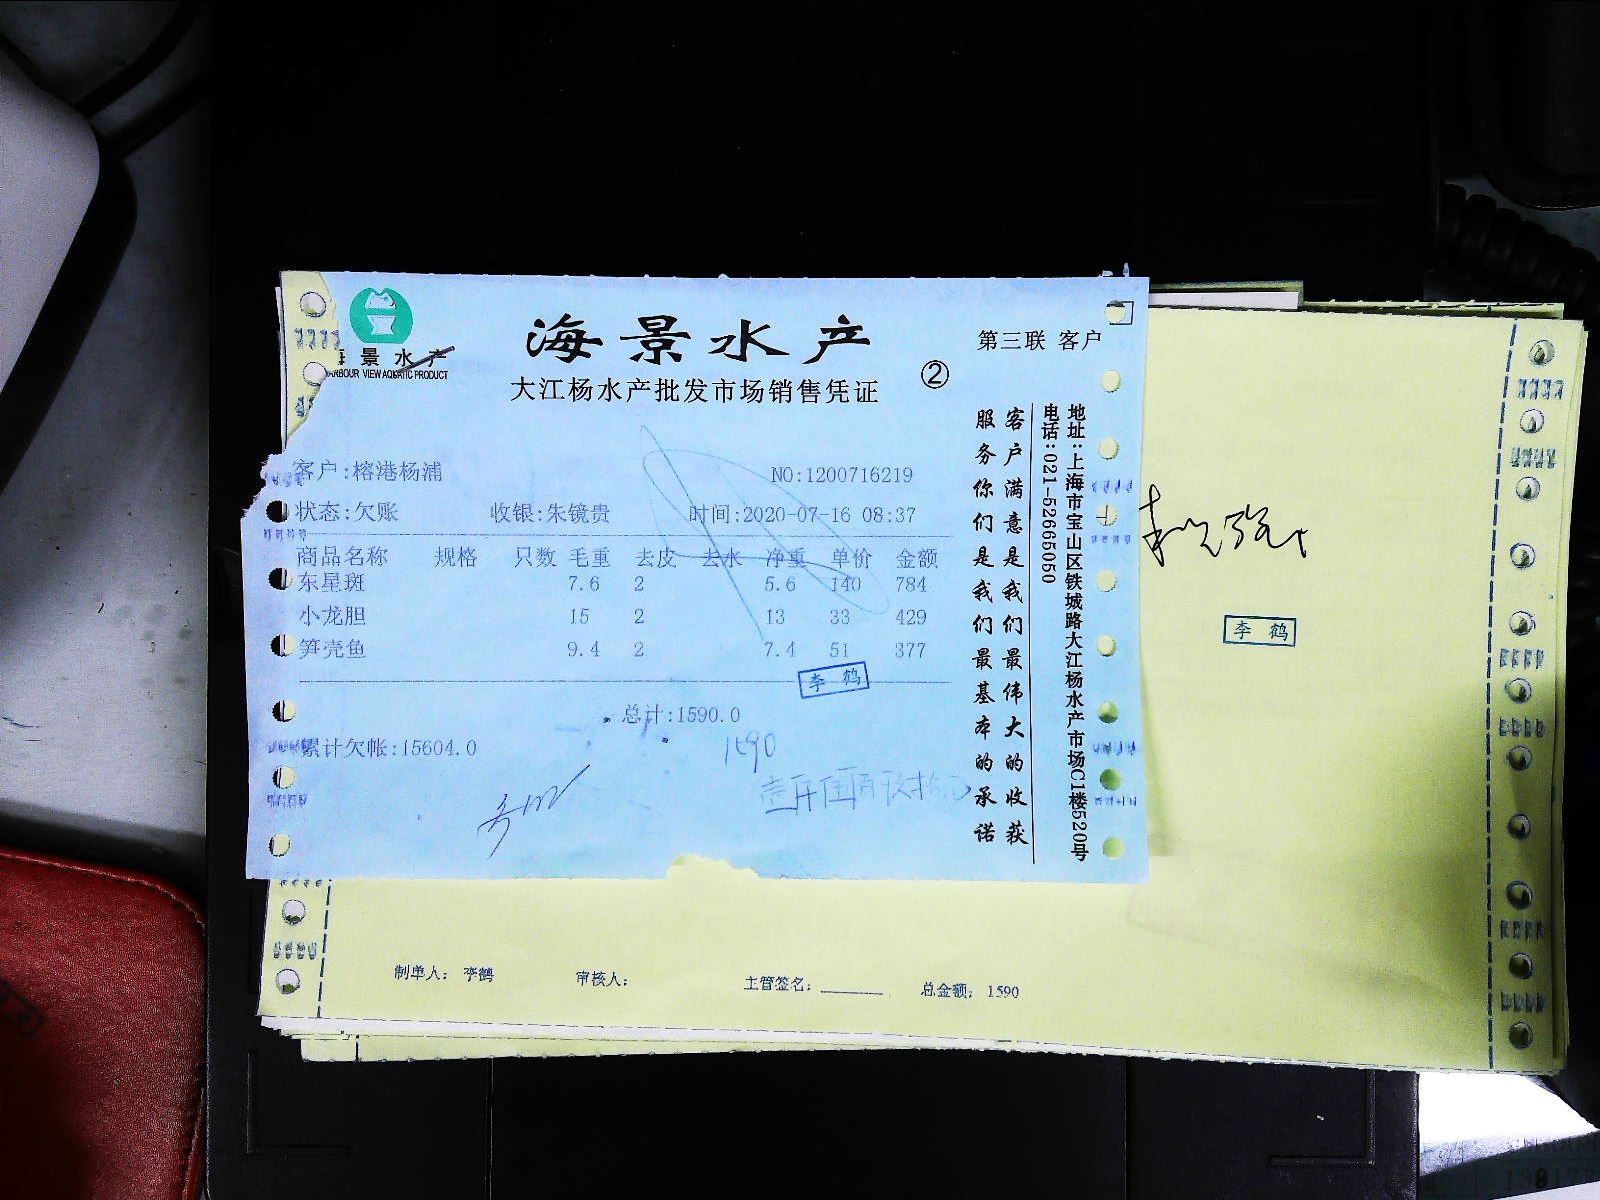 景水产
HARBOUR VIEW AQUATIC PRODUCT
海景水产
大江杨水产批发市场销售凭证
②
第三联 客户
客户:榕港杨浦
NO:1200716219
状态:欠账 收银:朱镜贵 时间:2020-07-16 08:37
商品名称 规格 只数 毛重 去皮 去水 净重 单价 金额
东星斑 7.6 2 5.6 140 784
小龙胆 15 2 13 33 429
笋壳鱼 9.4 2 7.4 51 377
李鹤
总计:1590.0
累计欠帐:15604.0
1590
壹仟伍百玖拾元
客户满意是我们最伟大的收获
服务你们是我们最基本的承诺
地址:上海市宝山区铁城路大江杨水产市场C1楼520号
电话:021-52665050
李鹤
制单人: 李鹤 审核人: 主管签名: 总金额: 1590